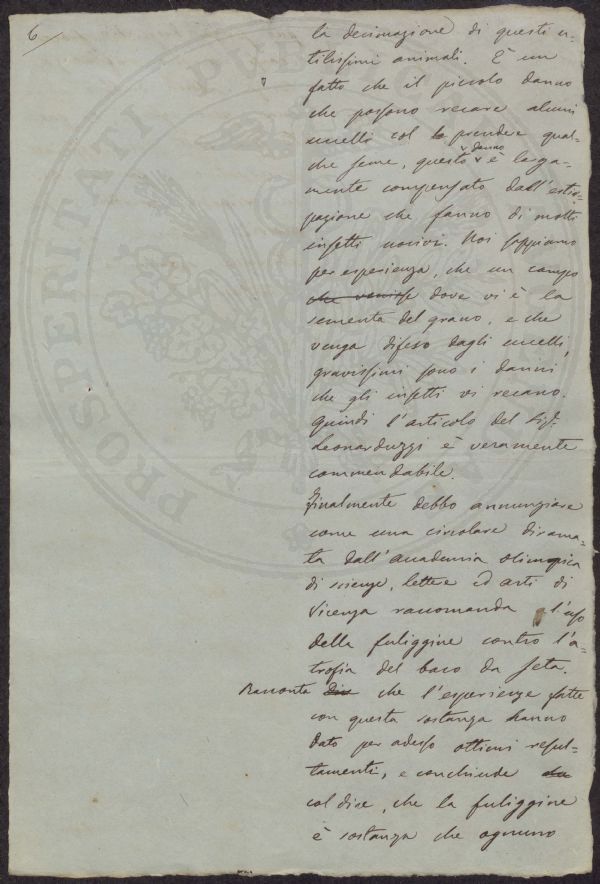 6
la decimazione di questi u-
tilissimi animali. È un
fatto che il piccolo danno
che possono recare alcuni
uccelli col prendere qual-
che seme, questo danno è larga-
mente compensato dall'estir-
pazione che fanno di molti
insetti nocivi. Noi sappiamo
per esperienza, che un campo
che venisse dove vi è la
sementa del grano, e che
venga difeso dagli uccelli,
gravissimi sono i danni
che gli insetti vi recano.
Quindi l'articolo del Sigr.
Leonarduzzi è veramente
commendabile.
Finalmente debbo annunziare
come una circolare dirama-
ta dall'Academia olimpica
di scienze, lettere ed arti di
Vicenza raccomanda l'uso
della fuliggine contro l'a-
trofia del baco da seta.
Racconta che l'esperienze fatte
con questa sostanza hanno
dato per adesso ottimi resul-
tamenti, e conchiude
col dire, che la fuliggine
è sostanza che ognuno
PROSPERITATI PVBLICAE